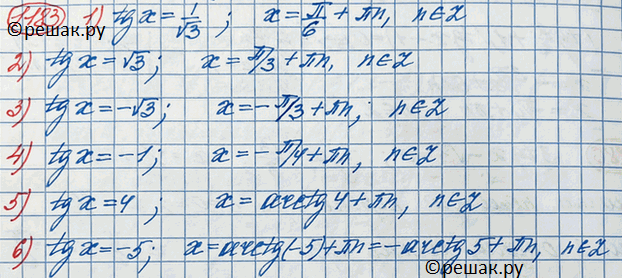 1183 1) tg x = 1/√3 ; x = π/6 + πn, n∈Z
©решак.ру
2) tg x = √3; x = π/3 + πn, n∈Z
3) tg x = -√3; x = -π/3 + πn; n∈Z
4) tg x = -1; x = -π/4 + πn, n∈Z
5) tg x = 4 ; x = arctg 4 + πn, n∈Z
6) tg x = -5; x = arctg(-5) + πn = -arctg 5 + πn, n∈Z
©решак.ру